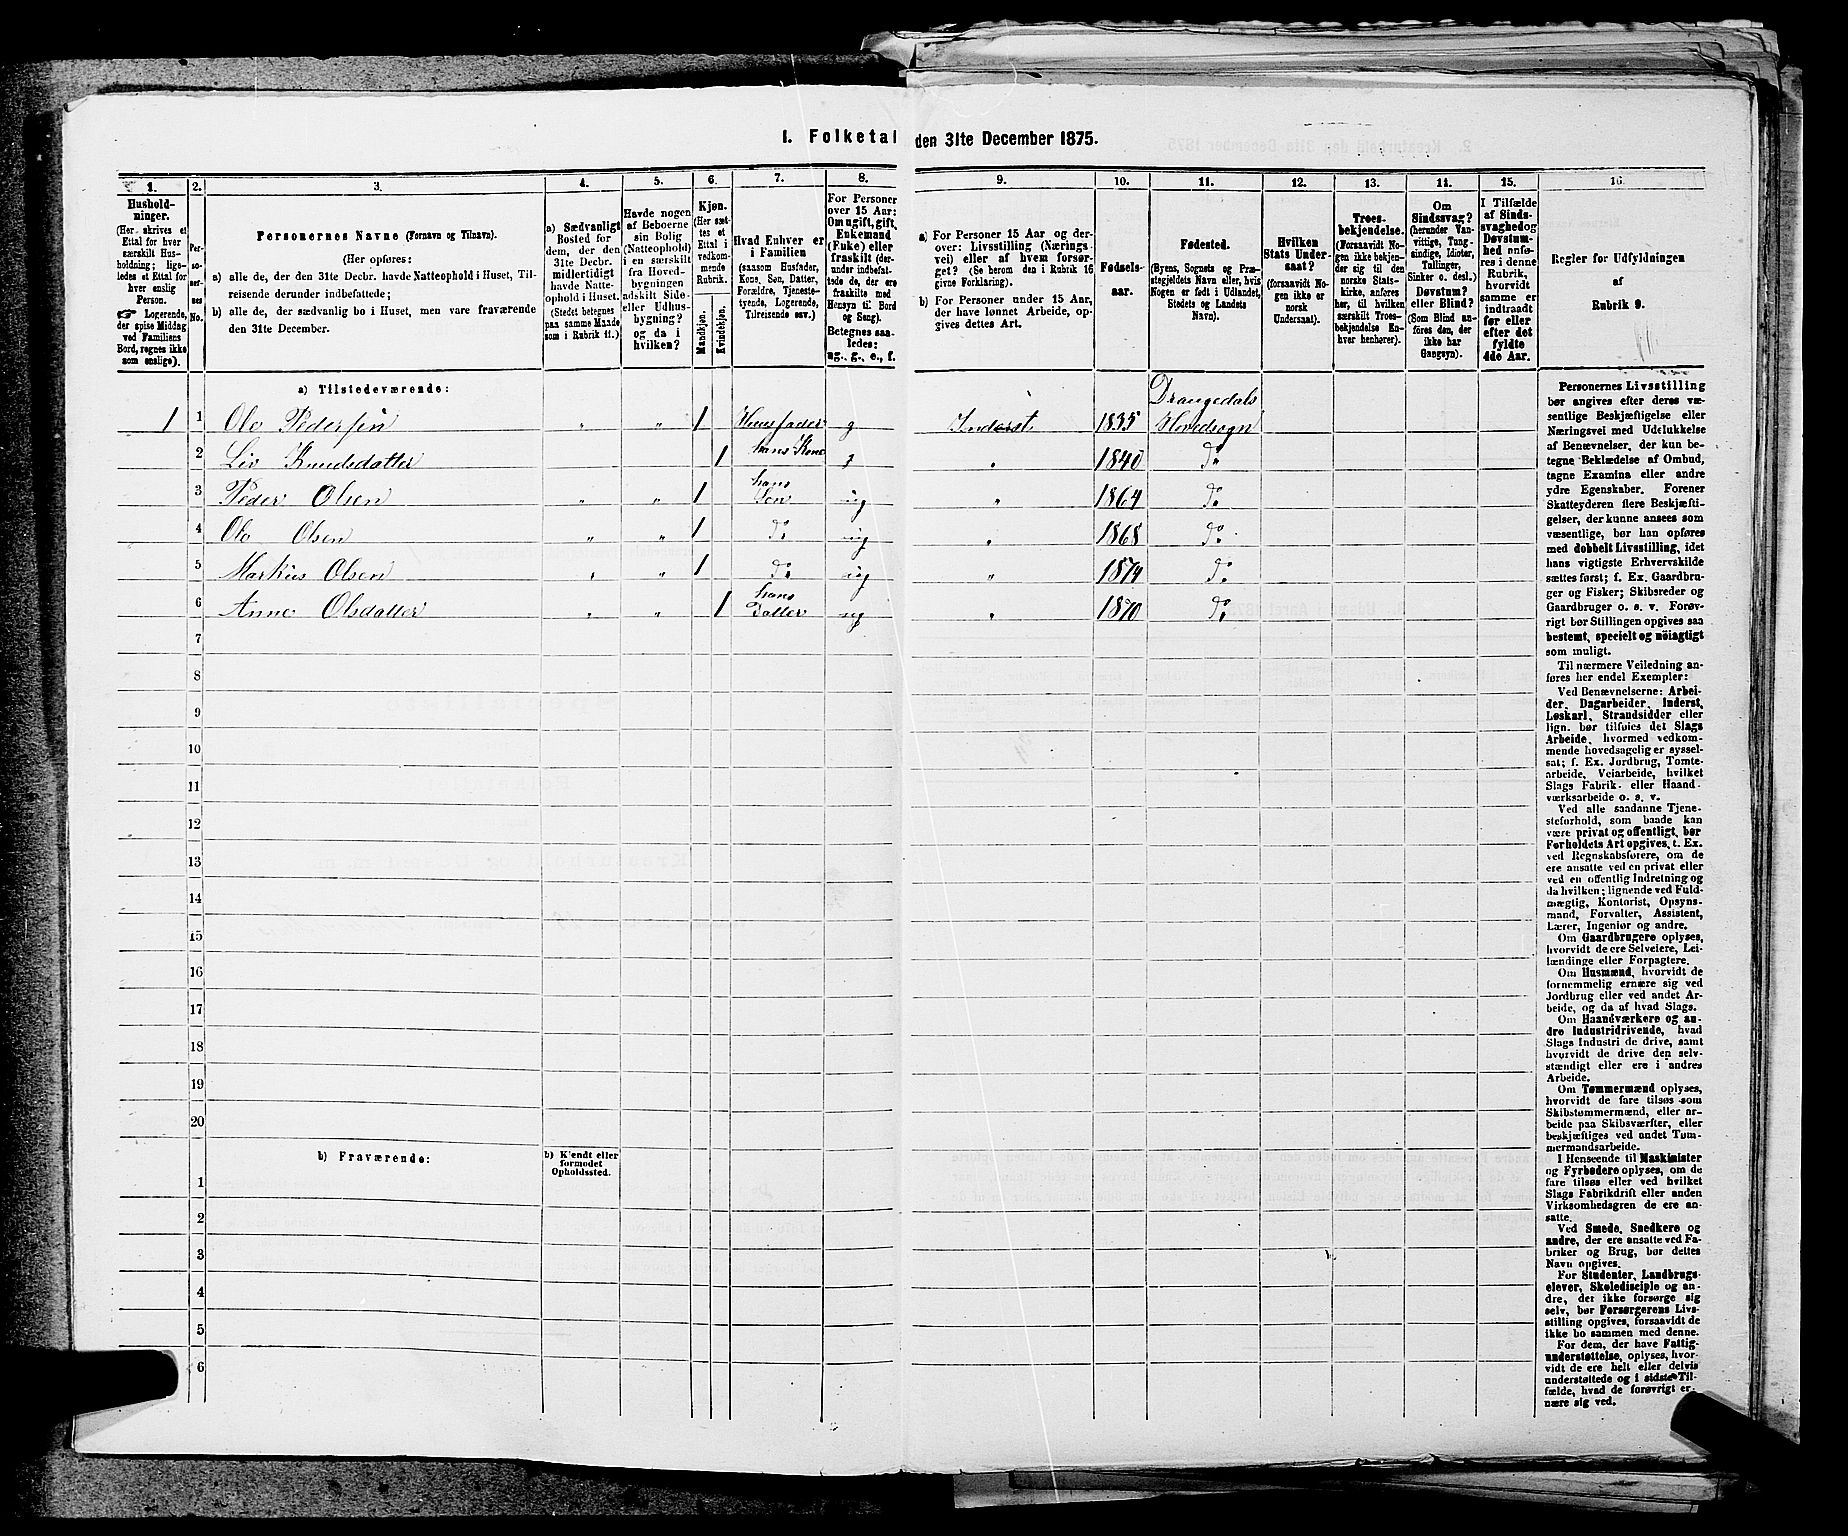 I. Folketal den 31te December 1875.
1.
2.
3.
4.
5.
6.
7.
8.
9.
10.
11.
12.
13.
14.
15.
16.
Hushold-
ninger.
(Her skrives et
Ettal for hver
særskilt Hus-
holdning; lige-
ledes et Ettal for
hver enslig
Person.
☞ Logerende,
der spise Middag
ved Familiens
Bord, regnes ikke
som enslige).
Per-
so-
ner-
nes
No.
Personernes Navne (Fornavn og Tilnavn).
(Her opføres:
a) alle de, der den 31te Decbr. havde Natteophold i Huset, Til-
reisende derunder indbefattede;
b) alle de, der sædvanlig bo i Huset, men vare fraværende
den 31te December.
a) Sædvanligt
Bosted for
dem, der den
31te Decbr.
midlertidigt
havde Natte-
ophold i Huset.
(Stedet betegnes
paa samme Maade
som i Rubrik 11.)
Havde nogen
af Beboerne
sin Bolig
(Natteophold)
i en særskilt
fra Hoved-
bygningen
adskilt Side-
eller Udhus-
bygning?
og da i
hvilken?
Kjøn.
(Her sæt-
tes et
Ettal i
vedkom-
mende
Rubrik.
Mandkjøn.
Kvindekjøn.
Hvad Enhver er
i Familien
(saasom Husfader,
Kone, Søn, Datter,
Forældre, Tjeneste-
tyende, Logerende,
Tilreisende osv.)
For Personer
over 15 Aar:
Om ugift, gift,
Enkemand
(Enke) eller
fraskilt (der-
under indbefat-
tede de, der
ere fraskilte med
Hensyn til Bord
og Seng).
Betegnes saa-
ledes:
ug., g., e., f.
a) For Personer 15 Aar og der-
over: Livsstilling (Nærings-
vei) eller af hvem forsør-
get? (Se herom den i Rubrik 16
givne Forklaring).
b) For Personer under 15 Aar,
der have lønnet Arbeide, op-
gives dettes Art.
Fødsels-
aar.
Fødested.
(Byens, Sognets og Præ-
stegjeldets Navn eller, hvis
Nogen er født i Udlandet,
Stedets og Landets
Navn).
Hvilken
Stats Under-
saat?
(forsaavidt No-
gen ikke er
norsk
Undersaat).
Troes-
bekjendelse.
(Forsaavidt No-
gen ikke bekjen-
der sig til den
norske Stats-
kirke, anføres
her, til hvilken
særskilt Troes-
bekjendelse En-
hver henhører).
Om
Sindssvag?
(herunder Van-
vittige, Tung-
sindige, Idioter,
Tullinger,
Sinker o. desl.)
Døvstum?
eller Blind?
(Som Blind an-
føres den, der
ikke har
Gangsyn).
I Tilfælde
af Sinds-
svaghed og
Døvstum-
hed anfø-
res i denne
Rubrik,
hvorvidt
samme er
indtraadt
før eller
efter det
fyldte
4de Aar.
Regler for Udfyldningen
af
Rubrik 9.
a) Tilstedeværende:
Drangedals
1 1 Ole Pedersen " " 1 Huusfader g Inderst 1835 Hovedsogn
2 Liv Knudsdatter 1 hans Kone g " 1840 Do
3 Peder Olsen " " 1 hans Søn ug " 1864 Do
4 Ole Olsen " " 1 Do ug " 1868 Do
5 Markus Olsen " " 1 Do ug " 1874 Do
6 Anne Olsdatter " " 1 hans Datter ug " 1870 Do
7
8
9
10
11
12
13
14
15
16
17
18
19
20
b) Fraværende:
b) Kjendt eller
formodet
Opholdssted.
1
2
3
4
5
6
Personernes Livsstilling
bør angives efter deres væ-
sentlige Beskjæftigelse eller
Næringsvei med Udelukkelse
af Benævnelser, der kun be-
tegne Beklædelse af Ombud,
tagne Examina eller andre
ydre Egenskaber. Forener
Skatteyderen flere Beskjæfti-
gelser, der kunne ansees som
væsentlige, bør han opføres
med dobbelt Livsstilling, idet
hans vigtigste Erhvervskilde
sættes først; f. Ex. Gaardbru-
ger og Fisker; Skibsreder og
Gaardbruger o. s. v. Forøv-
rigt bør Stillingen opgives saa
bestemt, specielt og nöiagtigt
som muligt.
Til nærmere Veiledning an-
føres her endel Exempler:
Ved Benævnelserne: Arbei-
der, Dagarbeider, Inderst,
Løskarl, Strandsidder eller
lign. bør tilføies det Slags
Arbeide, hvormed vedkom-
mende hovedsagelig er syssel-
sat; f. Ex. Jordbrug, Tomte-
arbeide, Veiarbeide, hvilket
Slags Fabrik- eller Haand-
værksarbeide o. s. v.
Ved alle saadanne Tjene-
steforhold, som baade kan
være privat og offentligt, bør
Forholdets Art opgives, t. Ex.
ved Regnskabsførere, om de
ere ansatte ved en privat eller
ved en offentlig Indretning og
da hvilken; lignende ved Fuld-
mægtig, Kontorist, Opsyns-
mand, Forvalter, Assistent,
Lærer, Ingeniør og andre.
Om Gaardbrugere oplyses,
hvorvidt de ere Selveiere, Lei-
lændinge eller Forpagtere.
Om Husmænd, hvorvidt de
fornemmelig ernære sig ved
Jordbrug eller ved andet Ar-
beide, og da af hvad Slags.
Om Haandværkere og an-
dre Industridrivende, hvad
Slags Industri de drive, samt
hvorvidt de drive den selv-
stændigt eller ere i andres
Arbeide.
Om Tømmermænd oplyses,
hvorvidt de fare tilsøs som
Skibstømmermænd, eller ar-
beide paa Skibsværfter, eller
beskjæftiges ved andet Tøm-
mermandsarbeide.
I Henseende til Maskinister
og Fyrbødere oplyses, om de
fare tilsøs eller ved hvilket
Slags Fabrikdrift eller anden
Virksomhedsgren de ere an-
satte.
Ved Smede, Snedkere og
andre, der ere ansatte ved Fa-
briker og Brug, bør dettes
Navn opgives.
For Studenter, Landbrugs-
elever, Skoledisciple og an-
dre, der ikke forsørge sig
selv, bør Forsørgerens Livs-
stilling opgives, forsaavidt de
ikke bo sammen med denne.
For dem, der have Fattig-
understøttelse, oplyses, hvor-
vidt de ere helt eller delvis
understøttede og i sidste Til-
fælde, hvad de forøvrigt er-
nære sig ved.